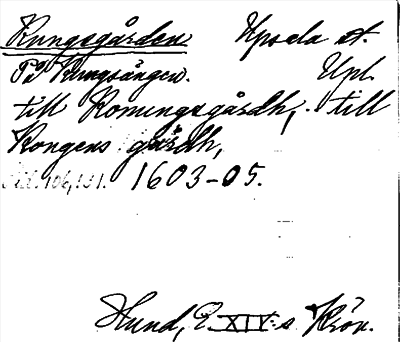 Kungsgården Upsala st.
På Kungsängen. Upl.
till Konungsgårdh, till
Kongens gårdh,
106, 131. 1603-05.
Hund, E XIV:s Krön.